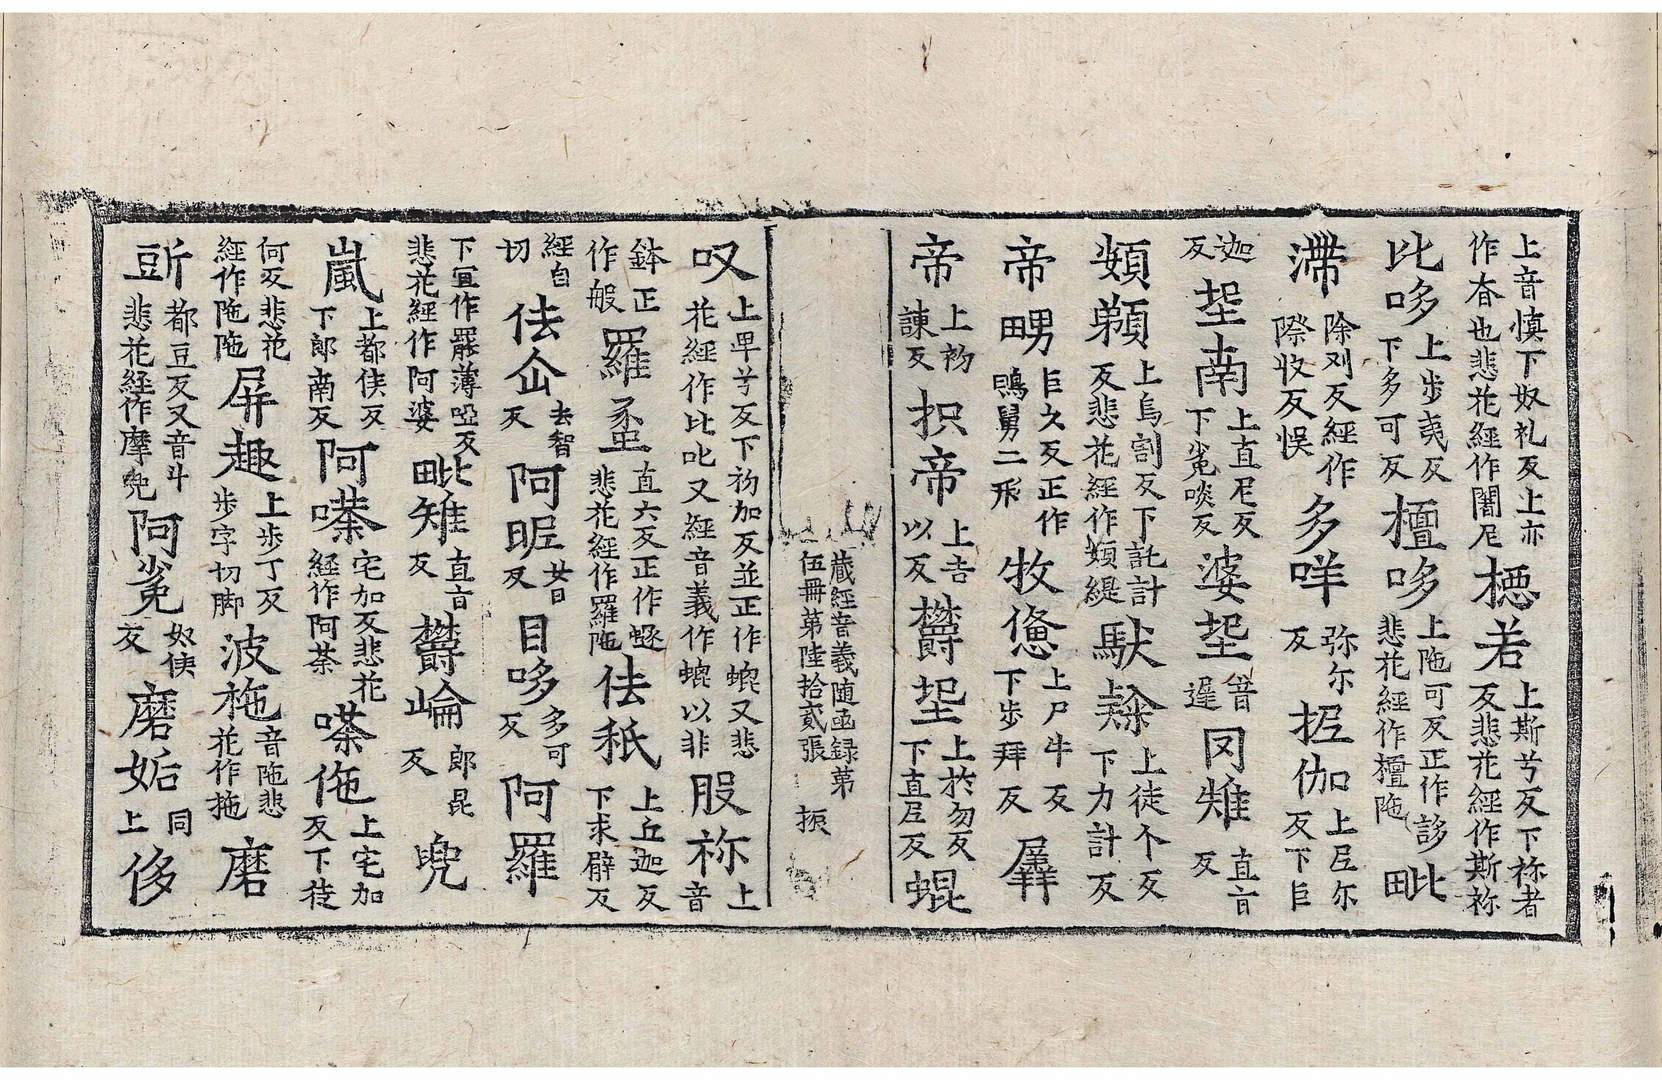 上音慎下奴礼反上亦
作昚也悲花經作闍尼𢠵若上斯兮反下祢者
反悲花經作斯祢
比哆上步夷反
下多可反檀哆上陁可反正作䛔
悲花經作檀陁毗
滯除刈反經作
際收反悞多咩弥尔
反抳伽上尼尔
反下巨
迦
反垼南上直尼反
下㝹啖反婆垼音
遟罔雉直盲
反
頞𩓥上烏割反下託計
反悲花經作頞緹䭾𨽻上徒个反
下力計反
帝㽒巨久反正作
鴫舅二形牧億上尸牛反
下步拜反犀
帝上初
諫反抧帝上吉
以反欝垼上於勿反
下直尼反蜫
藏經音義随函録第
伍冊第陸拾貳張 振
叹上卑兮反下初加反並正作螕又悲
花經作比叱又經音義作螕以非股祢上
音
鉢正
作般羅㙇直六反正作蝬
悲花經作羅陁佉秖上丘迦反
下求辟反
經自
切佉企去智
反阿昵女日
反目哆多可
反阿羅
下宜作羆薄啞反
悲花經作阿婆毗雉直盲
反欝崘郎昆
反兜
嵐上都侯反
下郎南反阿㗪宅加反悲花
經作阿荼㗪佹上宅加
反下徒
何反悲花
經作陁陁屏趣上步丁反
步字切脚波袘音陁悲
花作拖磨
㪷都豆反又音斗
悲花經作摩兜阿㝹奴侯
反磨姤同
上侈